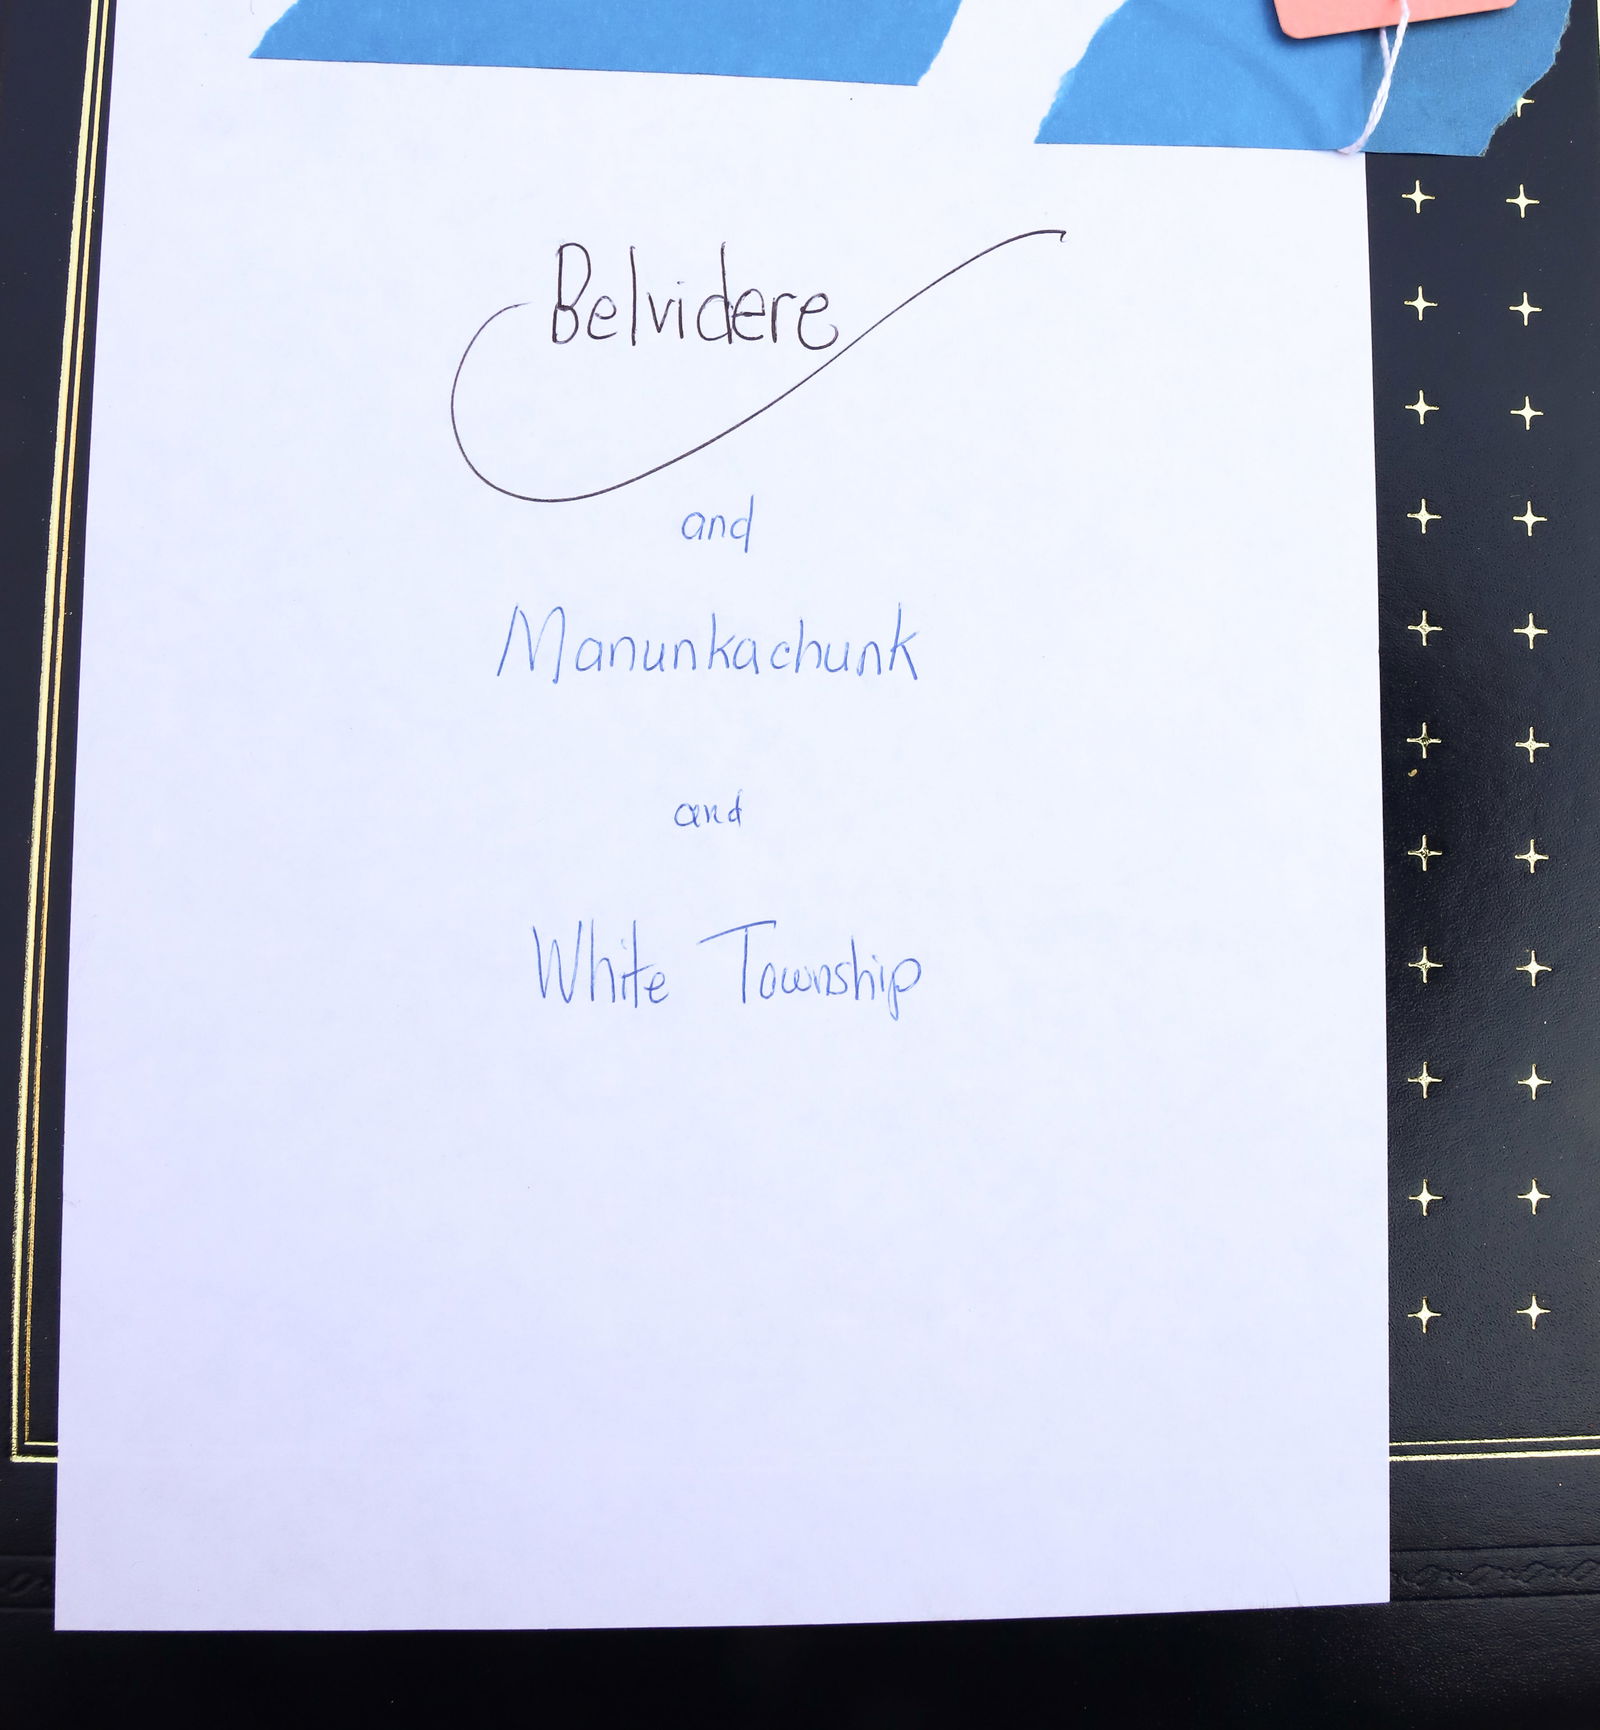 Belvidere
and
Manunkachunk
and
White Township